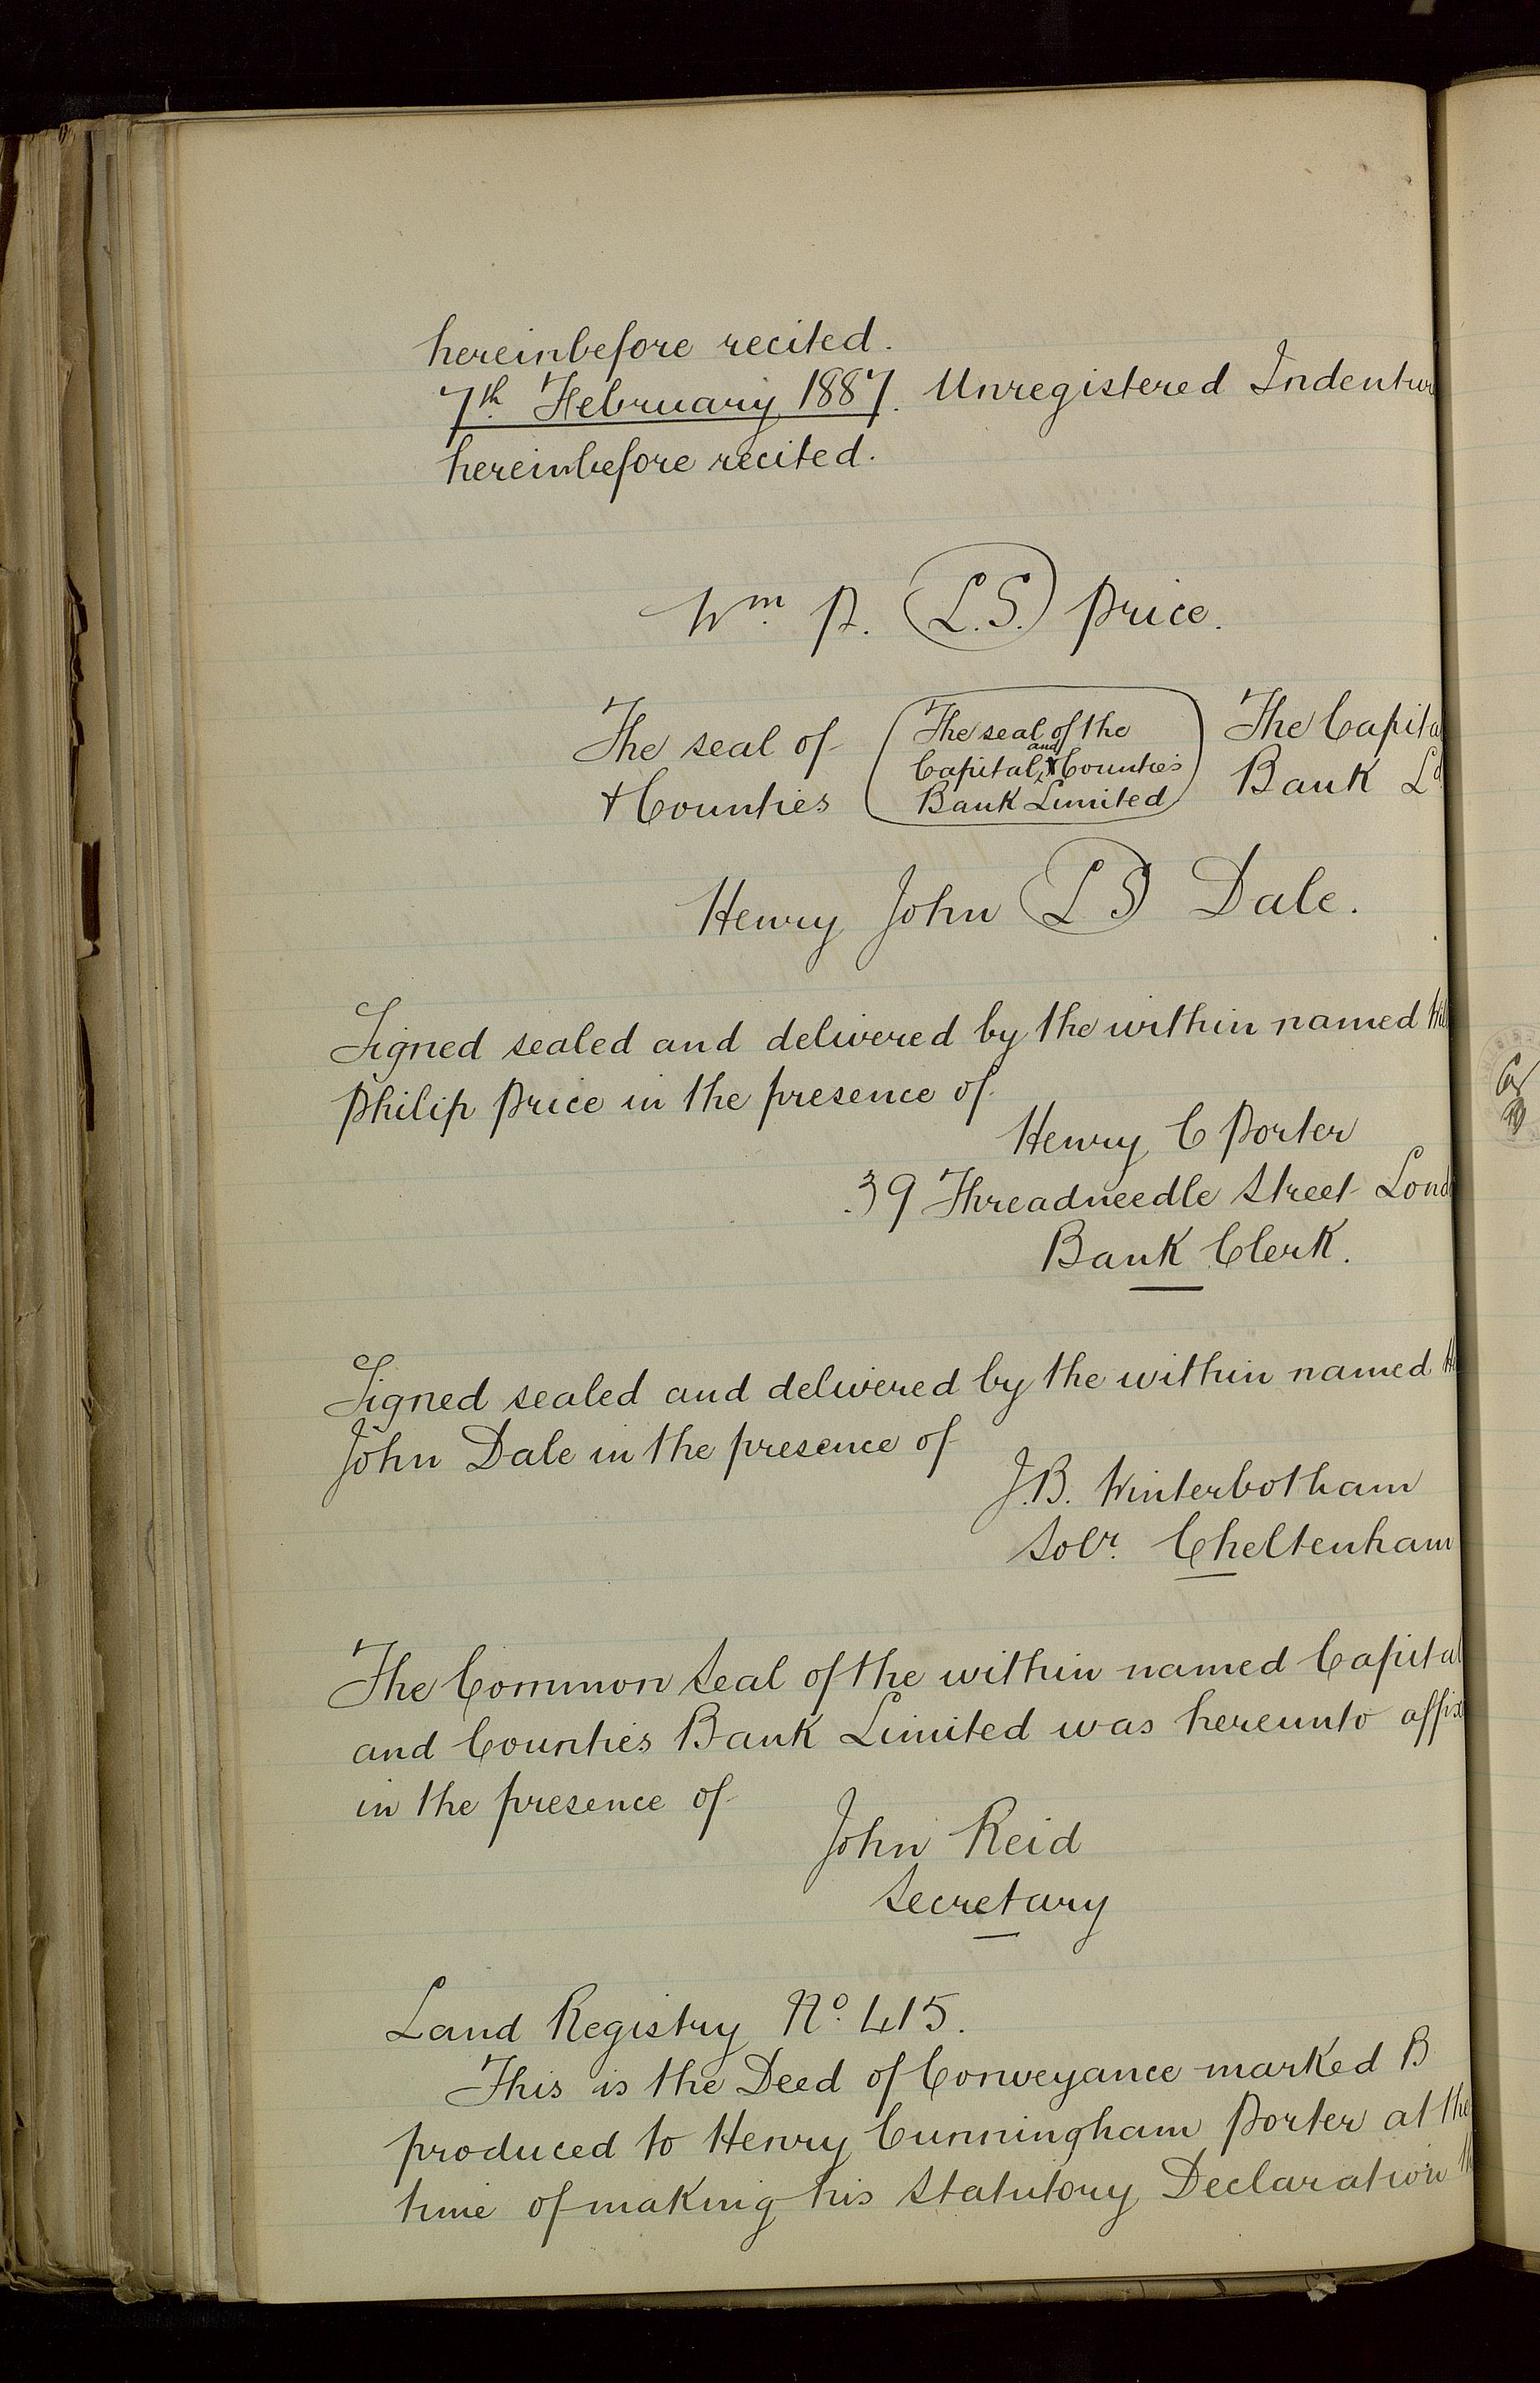 hereinbefore recited.
7th February 1887. Unregistered Indentur
hereinbefore recited.
Wm. P. (L.S.) Price.
The seal of (The seal of the Capital and Counties Bank Limited) The Capital
+ Counties Bank Ld
Henry John (L S) Dale.
Signed sealed and delivered by the within named Wil
Philip Price in the presence of
Henry C Porter
39 Threadneedle Street Lond
Bank Clerk.
Signed sealed and delivered by the within named He
John Dale in the presence of
J.B. Winterbotham
Solr. Cheltenham
The Common Seal of the within named Capital
and Counties Bank Limited was hereunto affix
in the presence of
John Reid
Secretary
Land Registry No. 415.
This is the Deed of Conveyance marked B
produced to Henry Cunningham Porter at the
time of making his Statutory Declaration